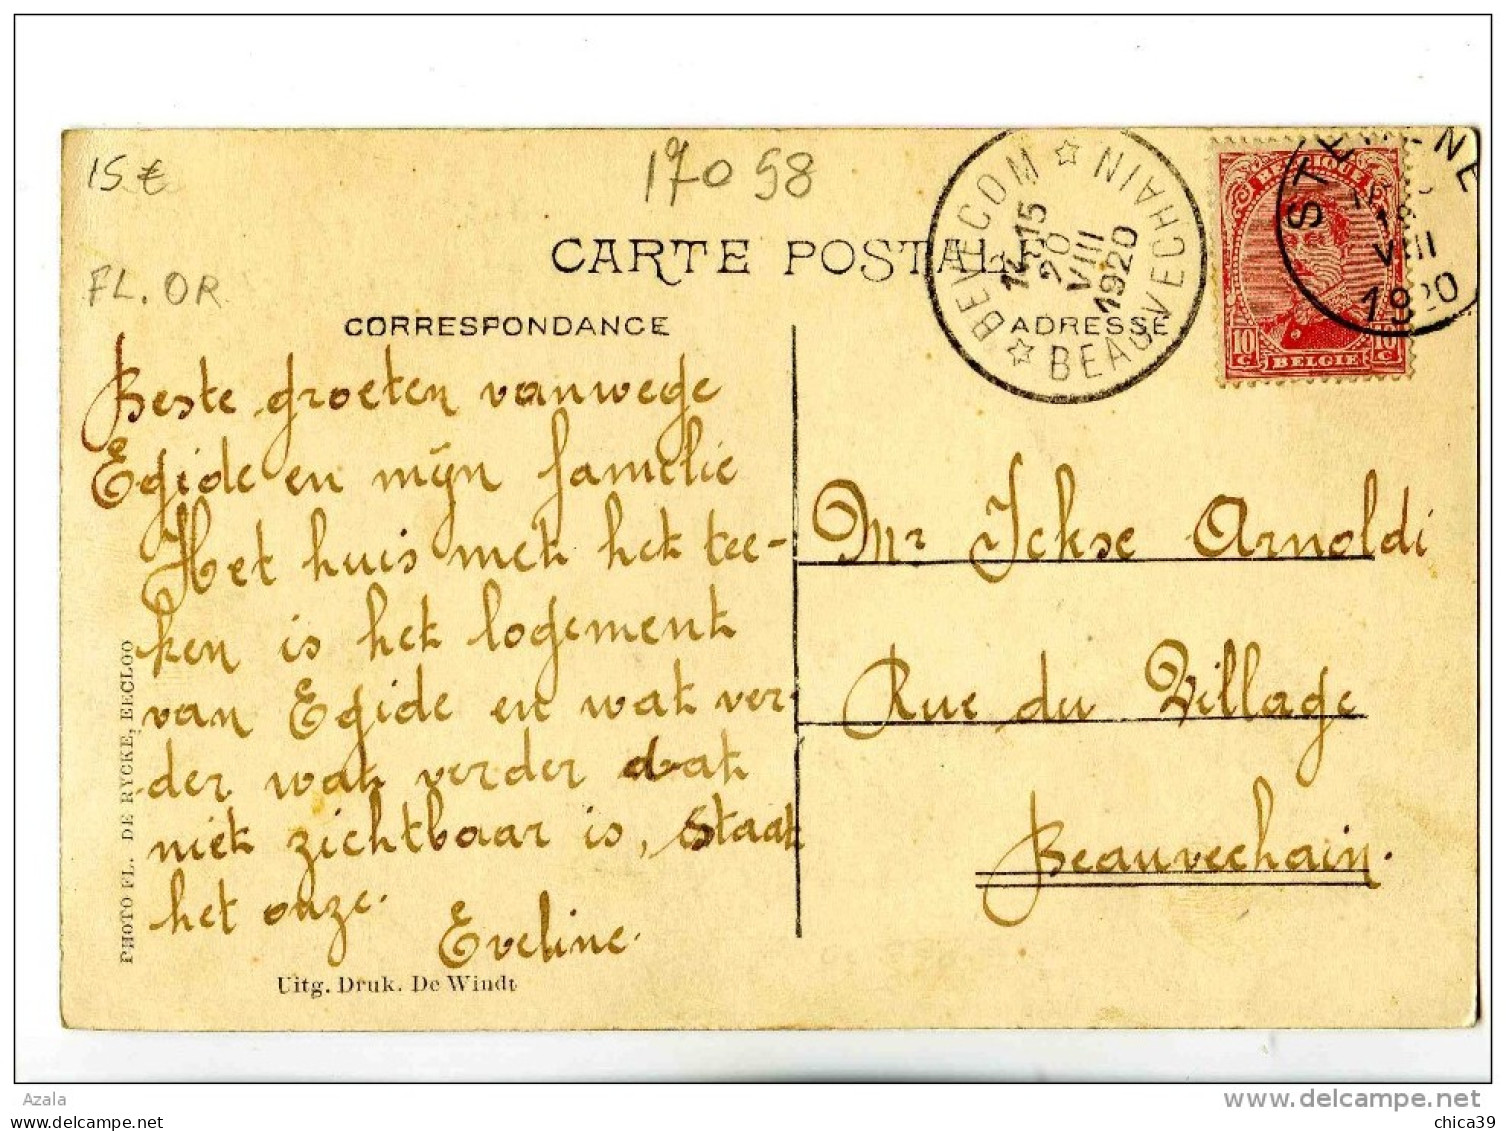 15 €
17058
FL. OR
CARTE POSTALE
CORRESPONDANCE
ADRESSE
BEVECOM ☆ BEAUVECHAIN ☆
14-15
20
VIII
1920
BELGIQUE
10 C. BELGIE 10 C.
VIII
1920
Beste groeten vanwege
Egide en mijn familie
Het huis met het tee-
ken is het logement
van Egide en wat ver-
der wat verder dat
niet zichtbaar is, staat
het onze.
Eveline.
Mr Ickse Arnoldi
Rue du Village
Beauvechain.
PHOTO FL. DE RYCKE, EECLOO
Uitg. Druk. De Windt
Azala
delcampe.net
www.delcampe.net
chica39